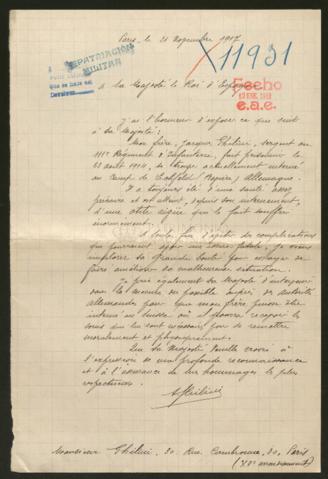 Paris, le 21 Novembre 1917
11931
REPATRIACIÓN
MILITAR
A Sa Majesté le Roi d'Espagne
Fecho
e.a.e.
J'ai l'honneur d'exposer ce qui suit
à Sa Majesté :
Mon frère, Jacques Ghilini, sergent au
111e Régiment d'Infanterie, fait prisonnier le
20 août 1914, se trouve actuellement interné
au Camp de (Bavière) Allemagne.
Il a toujours été d'une santé assez
précaire et est atteint, depuis son internement,
d'une otite aigüe qui le fait souffrir
énormément.
des complications
qui pourraient avoir une issue fatale, je viens
implorer Sa Grande bonté pour essayer de
faire améliorer sa malheureuse situation.
Je prie également Sa Majesté d'intervenir
dans la mesure du possible auprès des autorités
allemandes pour que mon frère puisse être
interné en Suisse où il pourra recevoir les
soins qui lui sont nécessaires pour se remettre
moralement et physiquement.
Que Sa Majesté veuille croire à
l'expression de ma profonde reconnaissance
et à l'assurance de mes hommages les plus
respectueux.
Ghilini
Monsieur Ghilini, 20. Rue Cambronne, 20, Paris
(XVe arrondissement)